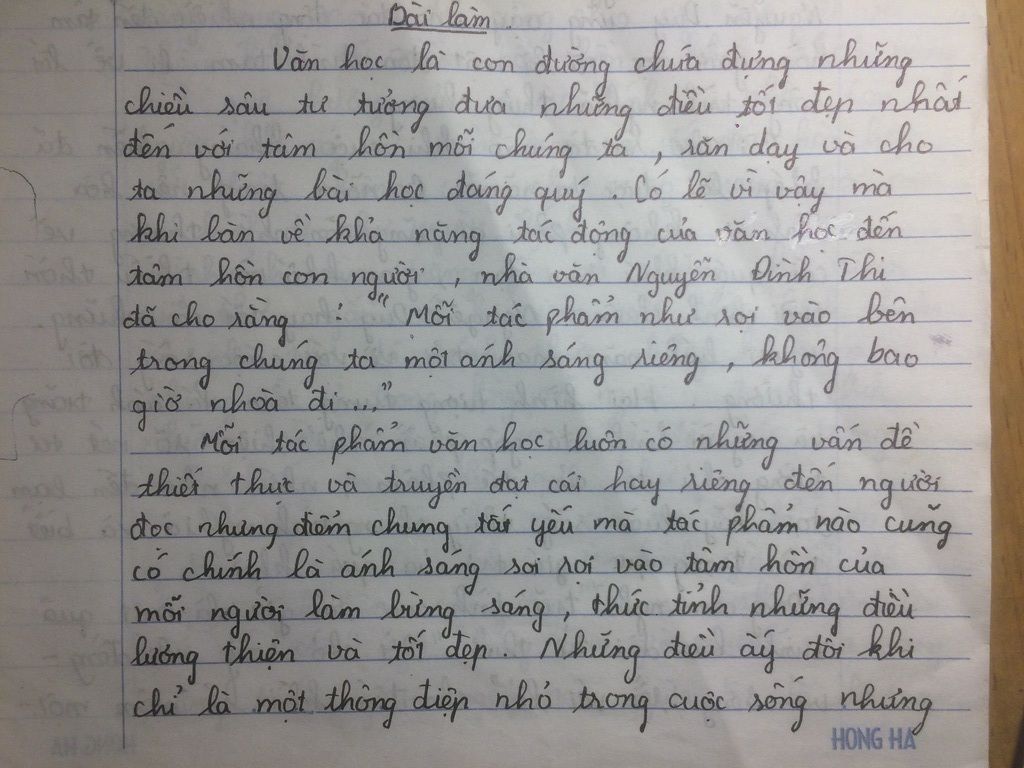 Bài làm
Văn học là con đường chứa đựng những
chiều sâu tư tưởng đưa những điều tốt đẹp nhất
đến với tâm hồn mỗi chúng ta, răn dạy và cho
ta những bài học đáng quý. Có lẽ vì vậy mà
khi bàn về khả năng tác động của văn học đến
tâm hồn con người, nhà văn Nguyễn Đình Thi
đã cho rằng : "Mỗi tác phẩm như rọi vào bên
trong chúng ta một ánh sáng riêng, không bao
giờ nhoà đi..."
Mỗi tác phẩm văn học luôn có những vấn đề
thiết thực và truyền đạt cái hay riêng đến người
đọc nhưng điểm chung tất yếu mà tác phẩm nào cũng
có chính là ánh sáng soi rọi vào tâm hồn của
mỗi người làm bừng sáng, thức tỉnh những điều
lương thiện và tốt đẹp. Những điều ấy đôi khi
chỉ là một thông điệp nhỏ trong cuộc sống nhưng
HONG HA